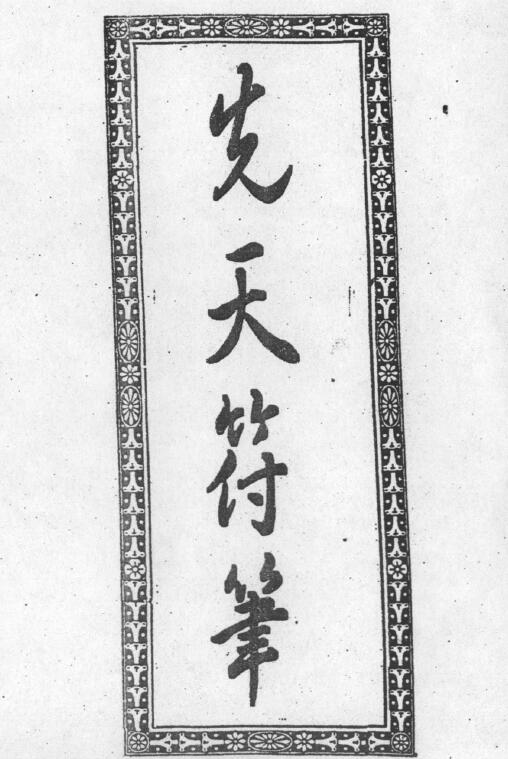 先天符筆